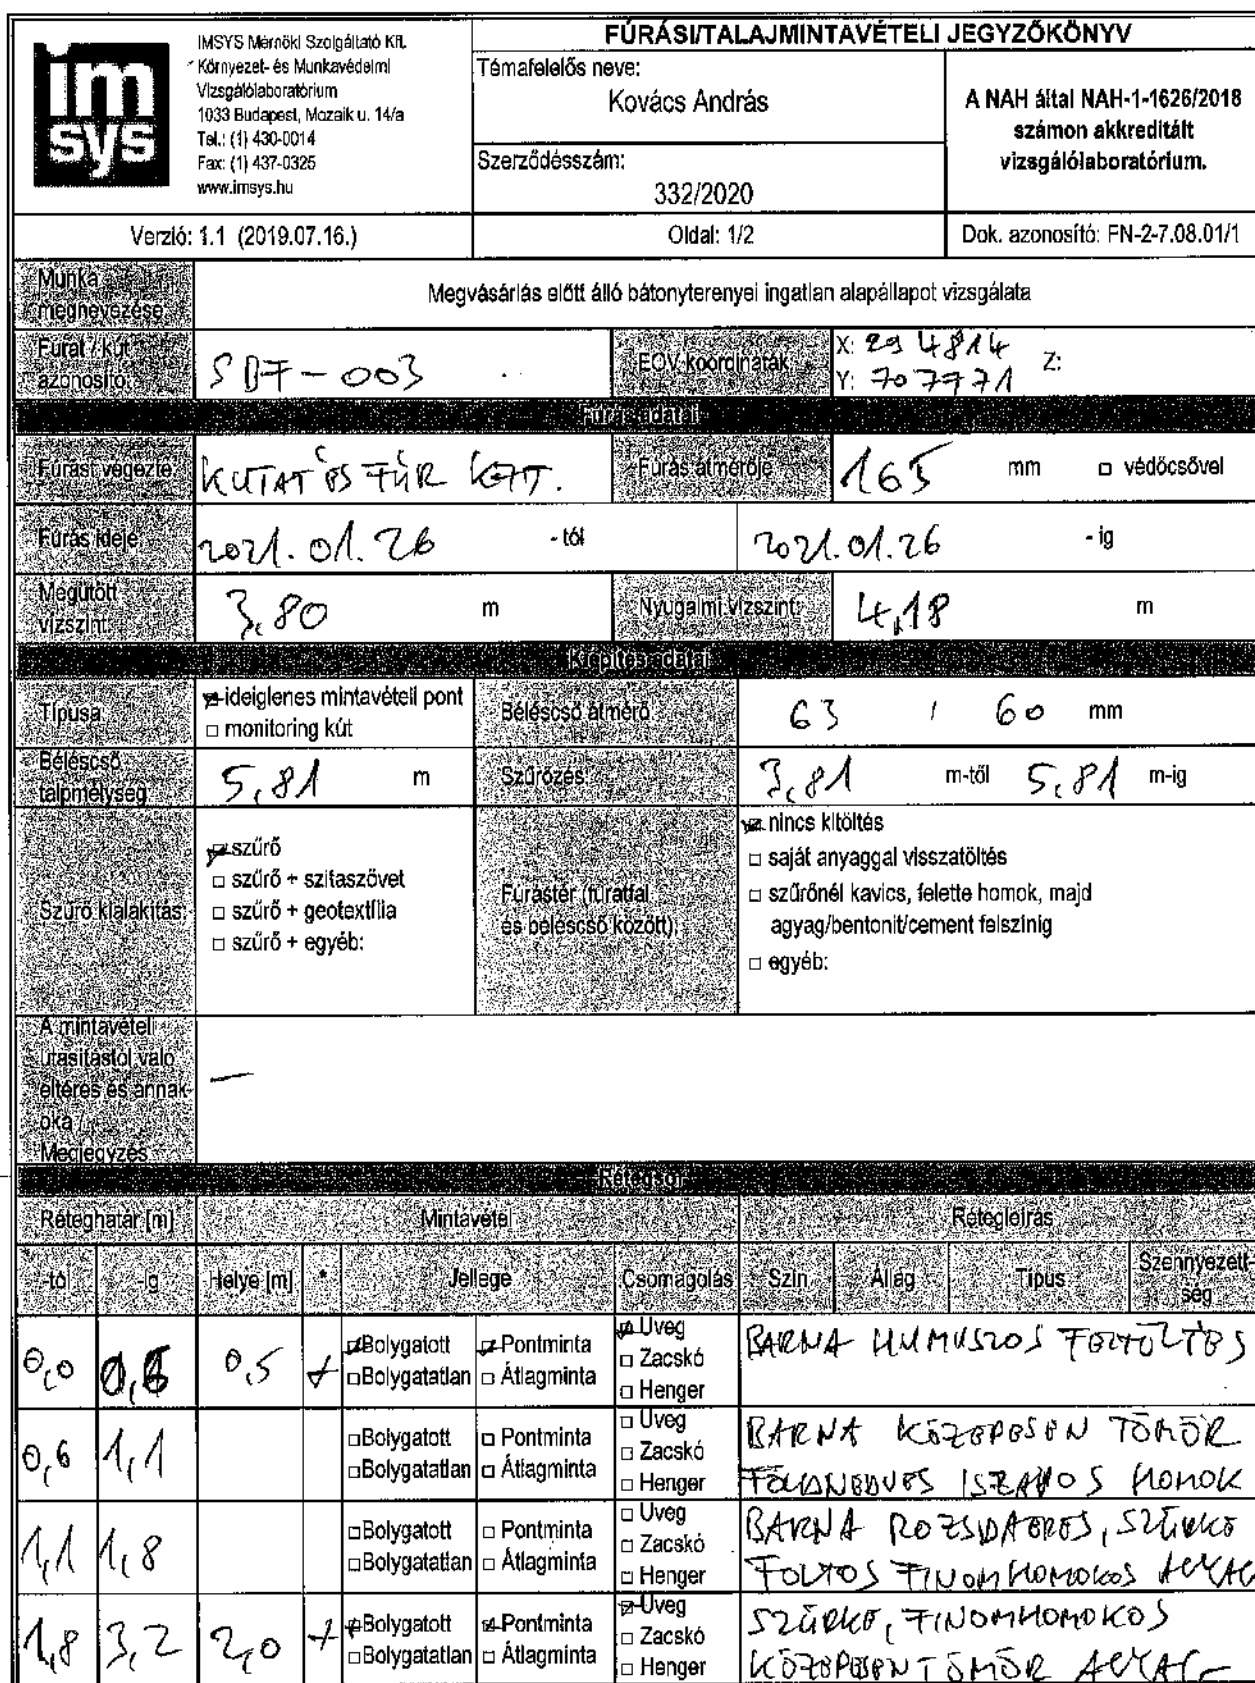 im
sys
IMSYS Mérnöki Szolgáltató Kft.
Környezet- és Munkavédelmi
Vizsgálólaboratórium
1033 Budapest, Mozaik u. 14/a
Tel.: (1) 430-0014
Fax: (1) 437-0325
www.imsys.hu
FÚRÁSI/TALAJMINTAVÉTELI JEGYZŐKÖNYV
Témafelelős neve:
Kovács András
Szerződésszám:
332/2020
A NAH által NAH-1-1626/2018
számon akkreditált
vizsgálólaboratórium.
Verzió: 1.1 (2019.07.16.) Oldal: 1/2 Dok. azonosító: FN-2-7.08.01/1
Munka
megnevezése
Megvásárlás előtt álló bátonyterenyei ingatlan alapállapot vizsgálata
Furat / kút
azonosító:
SBF-003
EOV koordináták
X: 294814 Z:
Y: 707771
Fúrás adatai
Fúrást végezte KUTAT ÉS FÚR KFT. Fúrás átmérője 165 mm □ védőcsővel
Fúrás ideje 2021.01.26 -tól 2021.01.26 -ig
Megütött
vízszint:
3,80 m Nyugalmi vízszint: 4,18 m
Kiépítés adatai
Típusa
ideiglenes mintavételi pont
□ monitoring kút
Béléscső átmérő 63 / 60 mm
Béléscső
talpmélység
5,81 m Szűrőzés: 3,81 m-től 5,81 m-ig
Szűrő kialakítás:
szűrő
□ szűrő + szitaszövet
□ szűrő + geotextília
□ szűrő + egyéb:
Fúrástér (furatfal
és béléscső között):
nincs kitöltés
□ saját anyaggal visszatöltés
□ szűrőnél kavics, felette homok, majd
agyag/bentonit/cement felszínig
□ egyéb:
A mintavételi
utasítástól való
eltérés és annak
oka /
Megjegyzés
—
Rétegsor
Réteghatár [m] Mintavétel Rétegleírás
-tól -ig Helye [m] * Jellege Csomagolás Szín Állag Típus Szennyezett-
ség
0,0 0,6 0,5 + Bolygatott Pontminta Üveg BARNA HUMUSZOS FELTÖLTÉS
□Bolygatatlan □ Átlagminta □ Zacskó
□ Henger
0,6 1,1 □Bolygatott □ Pontminta □ Üveg BARNA KÖZEPESEN TÖMÖR
□Bolygatatlan □ Átlagminta □ Zacskó
□ Henger FÖLDNEDVES ISZAPOS HOMOK
1,1 1,8 □Bolygatott □ Pontminta □ Üveg BARNA ROZSDAERES, SZÜRKE
□Bolygatatlan □ Átlagminta □ Zacskó
□ Henger FOLTOS FINOMHOMOKOS AGYAG
1,8 3,2 2,0 + Bolygatott Pontminta Üveg SZÜRKE, FINOMHOMOKOS
□Bolygatatlan □ Átlagminta □ Zacskó
□ Henger KÖZEPESEN TÖMÖR AGYAG